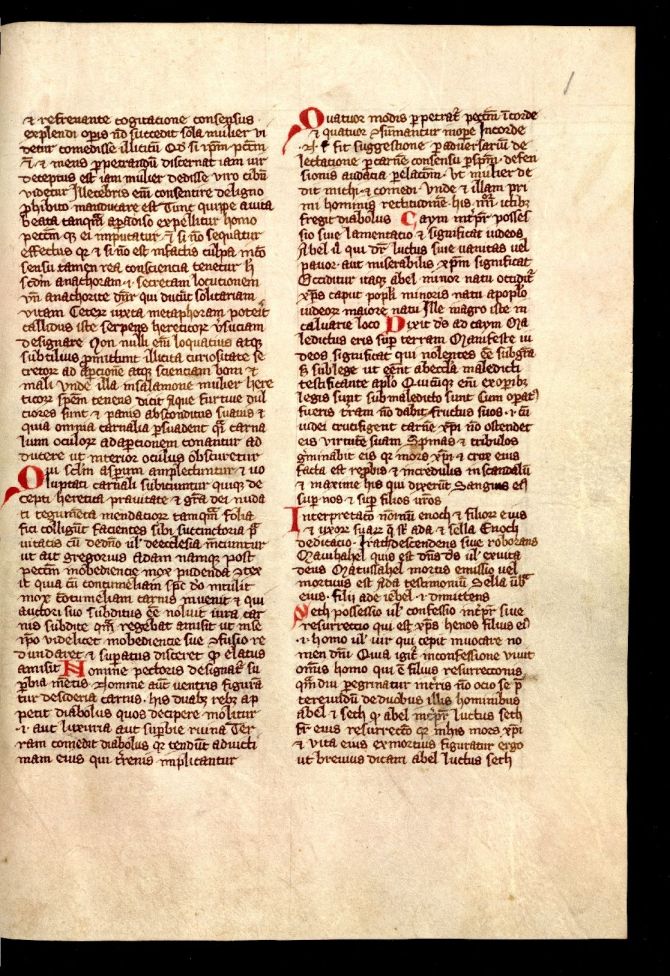 1
et refrenante cogitacione consensus
explendi opis nō succedit sola mulier vi
detur comedisse illicitū Qd si ipm pctm
et mens ppetrandū discernat iam vir
deceptus est iam mulier dedisse viro cibū
videtur Illecebris eni consentire de ligno
phibito manducare est Tunc quippe a vita
beata tanqm a padiso expellitur homo
pctm qz ei imputatur et si nō sequatur
effectus qz et si nō est in factis culpa in cō
sensu tamen rea consciencia tenetur h
scdm anathoram i secretam locutionem
vn anachorite dnr qui ducūt solitariam
vitam Ceter iuxta metaphoram poteit
callidus iste serpens hereticor vsuciam
designare Non nulli eni loquatius atqz
subtilius pmittunt illicita curiositate se
cretor ad apcione atqz scienciam boni et
mali vnde illa in salamone mulier here
ticor spem tenens dicit aque furtiue dul
ciores sunt et panis absconditus suauis et
qua omnia carnalia psuadent qr carna
lium oculor adapcionem conantur ad
ducere ut interior oculus obscuretur
Qui sclm aspum amplectuntur et uo
luptati carnali subiciuntur quiqz de
cepti heretica prauitate et gra dei nuda
ti tegumeta mendacior tamqm folia
fici colligūt facientes sibi succinctoria
vitatis cū de dno ul de ecclesia mciuntur
ut ait gregorius adam namqz post
pctm inobediencie mox pudenda
it quia cū contumeliam spe do intulit
mox cotumeliam carnis inuenit et qui
auctori suo subditus ee noluit iura car
nis subdite qm regebat amisit ut in se
ipo videlicet inobediencie sue 9fusio re
dundaret et supatus disceret q elatus
amisit Nomine pectoris designat su
pbia metis Nomine aut ventris figura
tur desideria carnis his duabz rebz ap
petit diabolus quos decipere molitur
i aut luxuria aut supbie ruina Ter
ram comedit diabolus qz tendūt aduicti
mam eius qui trenis implicantur
Quatuor modis ppetrat pectm ī corde
et quatuor 9sumantur in ope In corde
fit suggestione p aduersariū de
lectatione p carnē consensu p spm defen
sionis audatia p elacom Ut mulier de
dit michi et comedi Vnde et illam pri
mi hominis rectitudine his iiii ictibz
fregit diabolus Caym intpr posses
sio siue lamentacio et significat iudeos
Abel il qui dr luctus siue uanitas vel
pauor aut miserabilis xpm significat
Occiditur itaqz abel minor natu occidit
xps caput popli minoris natu a poplo
iudeor maiore natu Ille in agro iste in
caluarie loco Dixit ds ad caym Ma
ledictus eris sup terram Manifeste iu
deos significat qui nolentes ee sub gra
sub lege ut eent abecla maledicti
testificante aplo Quicūqz eni ex opibz
legis sunt sub maledicto sunt Cum opatz
fueris tram nō dabit fructus suos i cū
iudei crucifigerit carnē xpi nō ostendet
eis virtutē suam Spinas et tribulos
gminabit eis qz mors xpi et crux eius
facta est repbis et incredulis in scandalū
et maxime his qui dixerūt Sanguis est
sup nos et sup filios uros
Interpretaco noinū enoch et filior eius
et uxor suar q sr ada et sella Enoch
dedicacio Irach descendens siue roborans
Mauihahel quis est dns ds ul ex uita
deus Matussahel mortis emissio vel
mortuus est ada testimoniū Sella ūb
eius filij ade iebel i dimittens
Seth possessio ul confessio intpr siue
resurrectio qui est xps henos filius ei
i homo ul vir qui cepit inuocare no
men dni Qua igit in confessione viuit
omis homo qui ē filius resurrectonis
qm diu peregrinatur in tris nō ocio se p
tereundū de duobus illis hominibus
abel et seth q abel intpr luctus seth
fr eius resurrecto qz in his mors xpi
et vita eius ex mortuis figuratur ergo
ut breuius dicam abel luctus seth